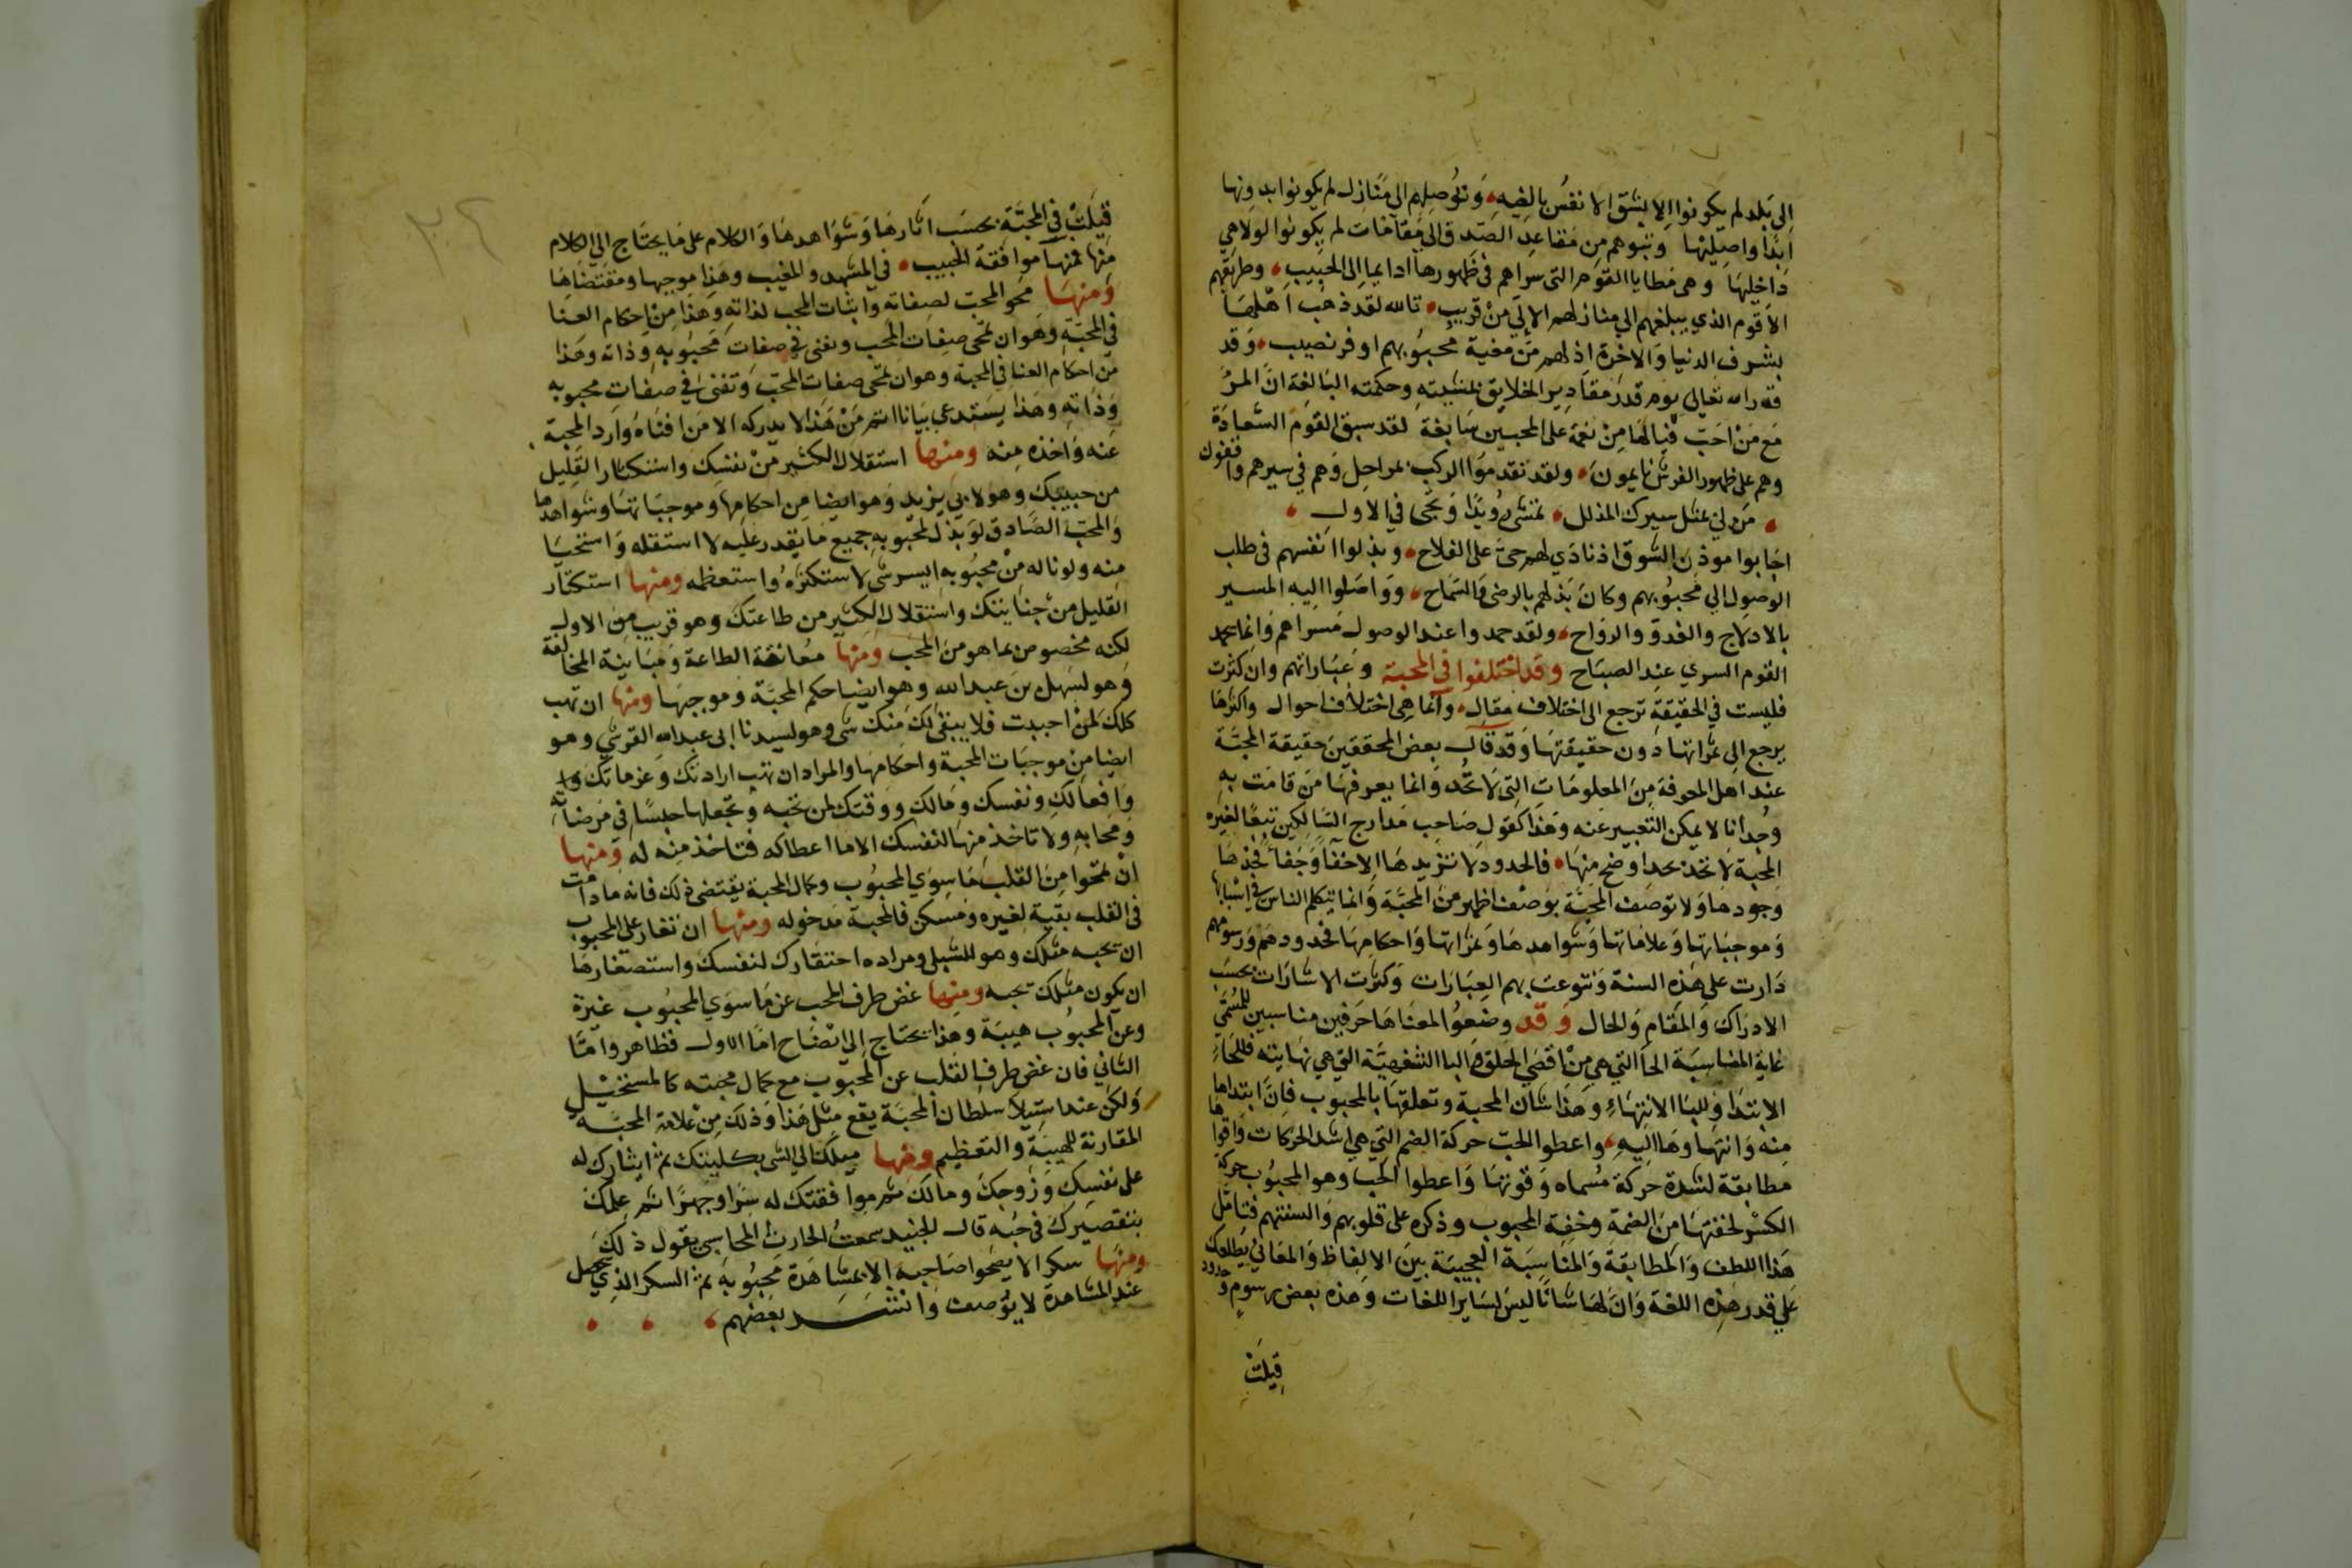 الى بلد لم يكونوا الا بشق الانفس بالغيه، وتوصلهم الى منازل لم يكونوا بدونها
ابدا واصليها وتبوهم من مقاعد الصدق الى مقامات لم يكونوا لولاهي
داخليها وهى مطايا القوم التى سراهم فى ظهورها دايما الى الحبيب، وطريقهم
الاقوم الذي يبلغهم الي منازلهم الاولي من قريب، تالله لقد ذهب اهلها
بشرف الدنيا والاخرة اذ لهم من معية محبوبهم اوفر نصيب، وقد
قدر الله تعالى يوم قدر مقادير الخلايق بمشيته وحكمته البالغة ان المرء
مع من احب فيالها من نعمة على المحبين سابغة لقد سبق القوم السعادة
وهم على ظهور الفرش نايمون، ولقد تقدموا الركب بمراحل وهم في سيرهم واقفون
، من لي بمثل سيرك المذلل، تمشى رويدا وتجى في الاول ،
اجابوا موذن الشوق اذ نادي لهم حى على الفلاح، وبذلوا انفسهم فى طلب
الوصول الي محبوبهم وكان بذلهم بالرضى والسماح، وواصلوا اليه المسير
بالادلاج والغدو والرواح، ولقد حمدوا عند الوصول مسراهم وانما يحمد
القوم السري عند الصباح وقد اختلفوا في المحبة وعباراتهم وان كثرت
فليست في الحقيقة ترجع الى اختلاف مقال، وانما هى اختلاف احوال واكثرها
يرجع الى ثمراتها دون حقيقتها وقد قال بعض المحققين حقيقة المحبة
عند اهل المعرفة من المعلومات التى لا تحد وانما يعرفها من قامت به
وجدانا لا يمكن التعبير عنه وهذا كقول صاحب مدارج السالكين تبعا لغيره
المحبة لا تحد بحد اوضح منها، فالحدود لا تزيدها الا خفا وجفا فحدها
وجودها ولا توصف المحبة بوصف اظهر من المحبة وانما يتكلم الناس في اسبابها
وموجباتها وعلاماتها وشواهدها وثمراتها واحكامها فحدودهم ورسومهم
دارت على هذه الستة وتنوعت بهم العبارات وكثرت الاشارات بحسب
الادراك والمقام والحال وقد وضعوا لمعناها حرفين مناسبين للمسمى
غاية المناسبة الحا التي هي من اقصى الحلق والبا الشفهية التي هي نهايته فللحاء
الابتدا وللبا الانتهاء وهذا شان المحبة وتعلقها بالمحبوب فان ابتداها
منه وانتهاوها اليه، واعطوا الحب حركة الضم التي هي اشد الحركات واقواها
مطابقة لشدة حركة مسماه وقوتها واعطوا الحب وهو المحبوب حركة
الكسر لخفتها من الضمة وخفة المحبوب وذكره على قلوبهم والسنتهم فتامل
هذا اللطف والمطابقة والمناسبة العجيبة بين الالفاظ والمعاني يطلعك
علي قدر هذه اللغة وان لها شانا ليس لساير اللغات وهذه بعض رسوم وحدود
قيلت
قيلت في المحبة بحسب اثارها وشواهدها والكلام على ما يحتاج الي الكلام
منها فمنها موافقة الحبيب، في المشهد والمغيب وهذا موجبها ومقتضاها
ومنها محو المحب لصفاته واثبات المحب لذاته وهذا من احكام الفنا
في المحبة وهو ان تمحى صفات المحب وتفنى في صفات محبوبه وذاته وهذا
من احكام الفنا في المحبة وهو ان تمحى صفات المحب وتفنى في صفات محبوبه
وذاته وهذا يستدعى بيانا اتم من هذا لا يدركه الا من افناه وارد المحبة
عنه واخذه منه ومنها استقلال الكثير من نفسك واستكثار القليل
من حبيبك وهو لابي يزيد وهو ايضا من احكامها وموجباتها وشواهدها
والمحب الصادق لو بذل لمحبوبه جميع ما يقدر عليه لاستقله واستحيا
منه ولو ناله من محبوبه ايسر شى لاستكثره واستعظمه ومنها استكثار
القليل من جنايتك واستقلال الكثير من طاعتك وهو قريب من الاول
لكنه مخصوص بما هو من المحب ومنها معانقة الطاعة ومباينة المخالفة
وهو لسهل بن عبد الله وهو ايضا حكم المحبة وموجبها ومنها ان تهب
كلك لمن احببت فلا يبقى لك منك شى وهو لسيدنا ابى عبد الله القرشي وهو
ايضا من موجبات المحبة واحكامها والمراد ان تهب ارادتك وعزماتك
وافعالك ونفسك ومالك ووقتك لمن تحبه وتجعلها حبسا في مرضاته
ومحابه ولا تاخذ منها لنفسك الا ما اعطاكه فتاخذ منه له ومنها
ان تمحوا من القلب ما سوي المحبوب وكمال المحبة يقتضى ذلك فانه ما دامت
فى القلب بقية لغيره ومسكن فالمحبة مدخوله ومنها ان تغار على المحبوب
ان يحبه مثلك وهو للشبلى ومراده احتقارك لنفسك واستصغارها
ان يكون مثلك يحبه ومنها غض طرف المحب عن ما سوي المحبوب غيرة
وعن المحبوب هيبة وهذا يحتاج الى ايضاح اما الاول فظاهر واما
الثاني فان غض طرف القلب عن المحبوب مع كمال محبته كالمستحيل
ولكن عند استيلا سلطان المحبة يقع مثل هذا وذلك من علامة المحبة
المقارنة للهيبة والتعظيم ومنها ميلك الي الشى بكليتك ثم ايثارك له
على نفسك وزوجك ومالك ثم موافقتك له سرا وجهرا ثم علمك
بتقصيرك في حبه قال الجنيد سمعت الحارث المحاسبي يقول ذلك
ومنها سكر لا يصحوا صاحبه الا بمشاهدة محبوبه ثم السكر الذي يحصل
عند المشاهدة لا يوصف وانشد بعضهم ، ، ،